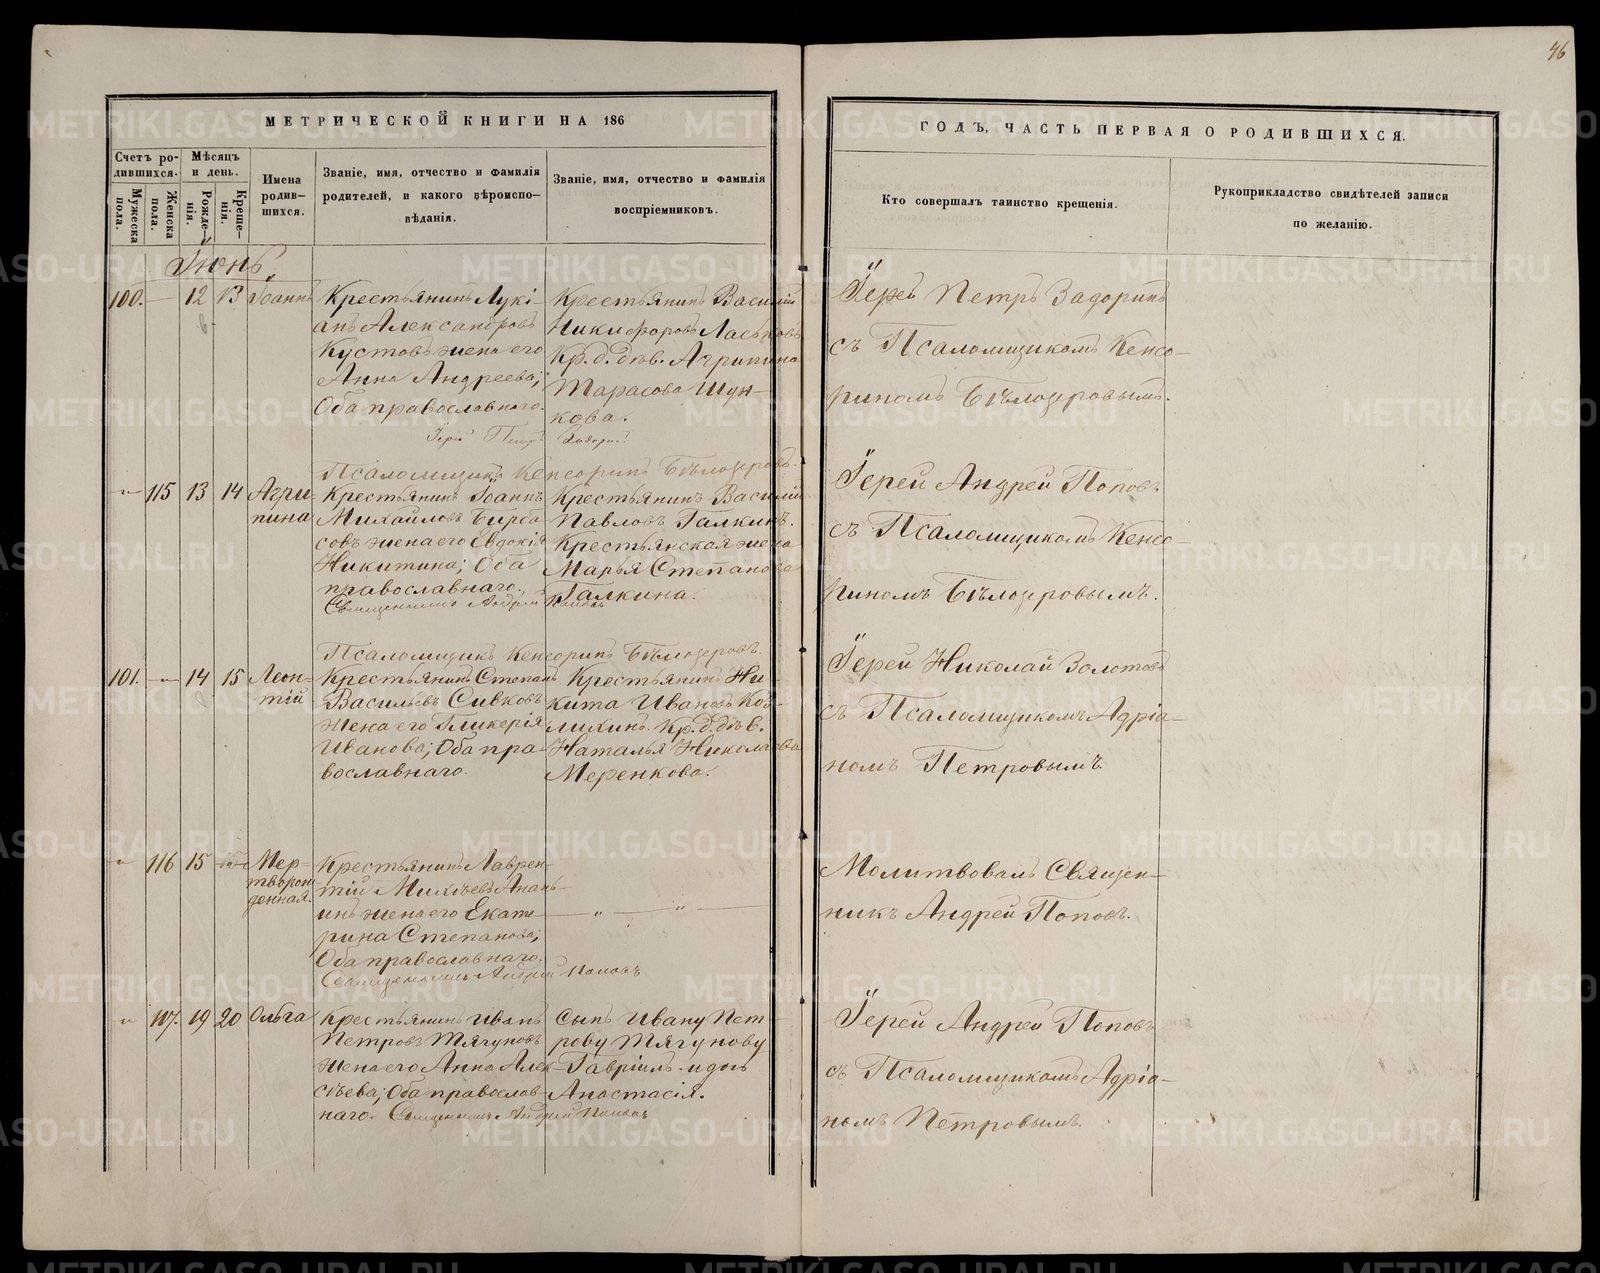 46
МЕТРИЧЕСКОЙ КНИГИ НА 186
ГОДЪ, ЧАСТЬ ПЕРВАЯ О РОДИВШИХСЯ.
Счетъ ро-
дившихся.
Мужеска
пола.
Женска
пола.
Мѣсяцъ
и день.
Рожде-
нія.
Креще-
нія.
Имена
родив-
шихся.
Званіе, имя, отчество и фамилія
родителей, и какого вѣроиспо-
вѣданія.
Званіе, имя, отчество и фамилія
воспріемниковъ.
Кто совершалъ таинство крещенія.
Рукоприкладство свидѣтелей записи
по желанію.
Іюнь.
100. — 12 13 Іоаннъ
Крестьянинъ Лукі-
анъ Александровъ
Кустовъ жена его
Анна Андреева;
Оба православнаго.
Крестьянинъ Василій
Никифоровъ Ласьковъ
Кр. д. дѣв. Агрипина
Тарасова Шун-
кова.
Іерей Петръ Задоринъ
съ Псаломщикомъ Кенсо-
риномъ Бѣлозеровымъ.
Іерей Петръ Задоринъ
Псаломщикъ Кенсоринъ Бѣлозеровъ.
— 115 13 14 Агри-
пина
Крестьянинъ Іоаннъ
Михайловъ Бирба
совъ жена его Евдокія
Никитина; Оба
православнаго.
Крестьянинъ Василій
Павловъ Галкинъ.
Крестьянская жена
Марья Степанова
Галкина.
Іерей Андрей Поповъ
съ Псаломщикомъ Кенсо-
риномъ Бѣлозеровымъ.
Священникъ Андрей Поповъ
Псаломщикъ Кенсоринъ Бѣлозеровъ.
101. — 14 15 Леон-
тій
Крестьянинъ Степанъ
Васильевъ Сивковъ
Жена его Гликерія
Иванова; Оба пра-
вославнаго.
Крестьянинъ Ни-
кита Ивановъ Коз-
михинъ. Кр. д. дѣв.
Наталья Николаева
Меренкова.
Іерей Николай Золотовъ
съ Псаломщикомъ Адріа-
номъ Петровымъ.
— 116 15 — Мер-
творож
денная.
Крестьянинъ Лаврен-
тій Михѣевъ Анань-
инъ жена его Екате
рина Степанова;
Оба православнаго.
— „ — „ —
Молитвовалъ Священ-
никъ Андрей Поповъ.
Священникъ Андрей Поповъ
— 117. 19 20 Ольга
Крестьянинъ Иванъ
Петровъ Тягуновъ
жена его Анна Алек-
сѣева; Оба православ-
наго.
Сынъ Ивану Пет-
рову Тягунову
Гавріилъ и дочь
Анастасія.
Іерей Андрей Поповъ
съ Псаломщикомъ Адріа-
номъ Петровымъ.
Священникъ Андрей Поповъ
METRIKI.GASO-URAL.RU